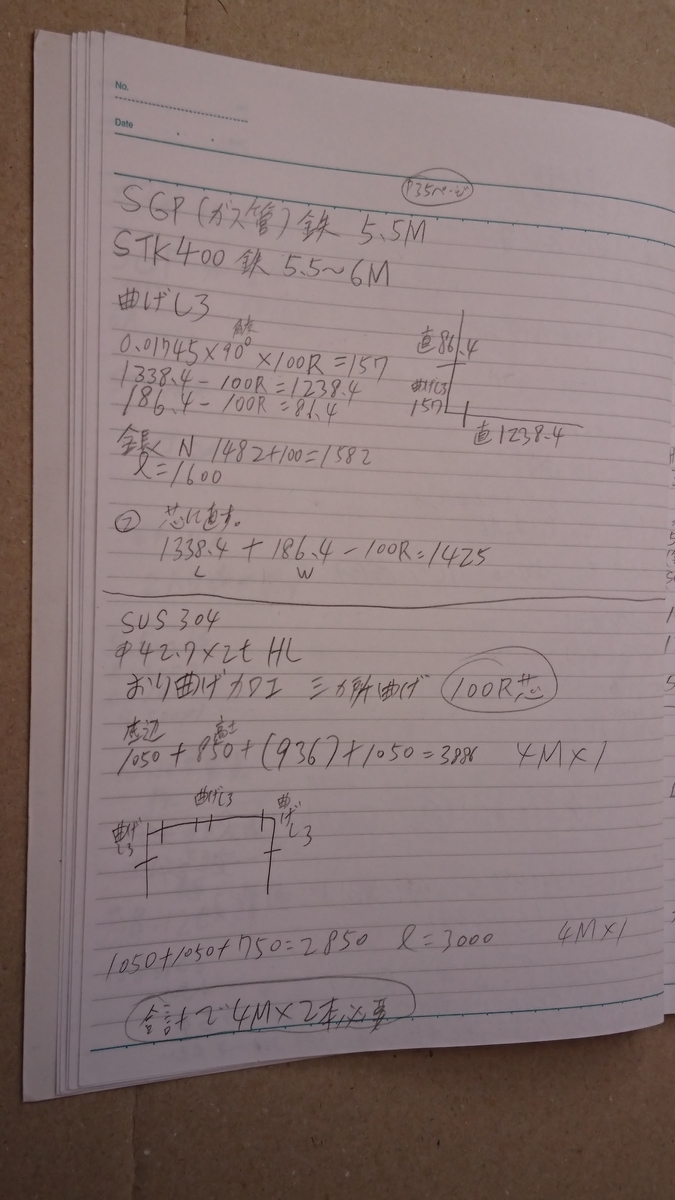 No.
Date
P35ページ
SGP (ガス管) 鉄 5.5M
STK400 鉄 5.5~6M
曲げしろ
角度
0.01745×90°×100R=157
1338.4-100R=1238.4
186.4-100R=81.4
直86.4
曲げしろ
157
直1238.4
全長 N 1482+100=1582
l=1600
② 芯に直す。
1338.4+186.4-100R=1425
L W
SUS304
Φ42.7×2t HL
おり曲げカロエ 三カ所曲げ 100R芯
底辺 高さ
1050+850+(936)+1050=3886 4M×1
曲げしろ
曲げしろ
曲げしろ
1050+1050+750=2850 l=3000 4M×1
合計で4M×2本必要